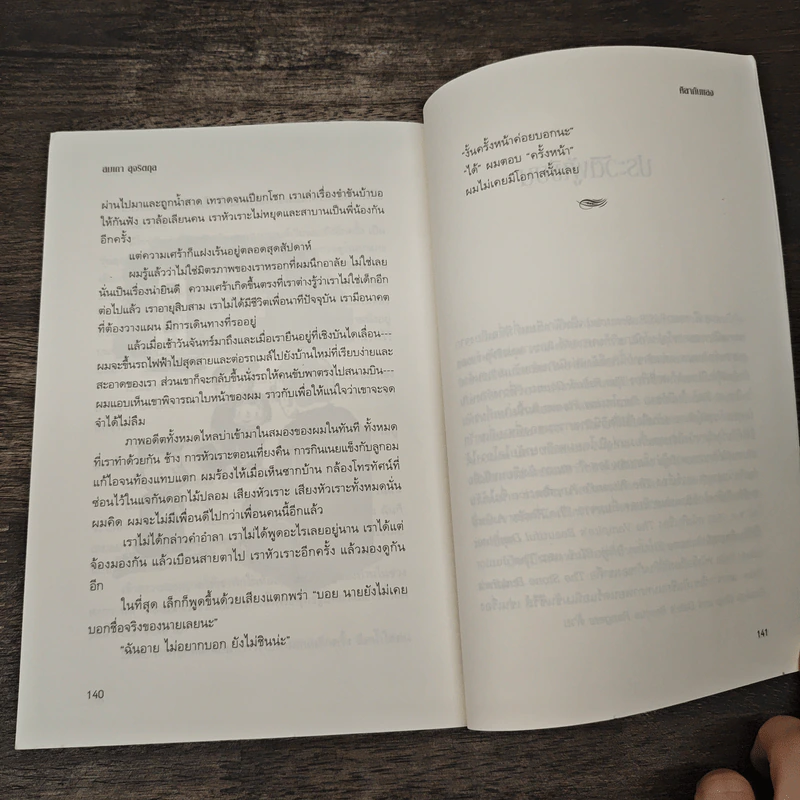 สมเถา สุจริตกุล
ผ่านไปมาและถูกน้ำสาด เทราดจนเปียกโชก เราเล่าเรื่องขำขันบ้าบอ
ให้กันฟัง เราล้อเลียนคน เราหัวเราะไม่หยุดและสาบานเป็นพี่น้องกัน
อีกครั้ง
แต่ความเศร้าก็แฝงเร้นอยู่ตลอดสุดสัปดาห์
ผมรู้แล้วว่าไม่ใช่มิตรภาพของเราหรอกที่ผมนึกอาลัย ไม่ใช่เลย
นั่นเป็นเรื่องน่ายินดี ความเศร้าเกิดขึ้นตรงที่เราต่างรู้ว่าเราไม่ใช่เด็กอีก
ต่อไปแล้ว เราอายุสิบสาม เราไม่ได้มีชีวิตเพื่อนาทีปัจจุบัน เรามีอนาคต
ที่ต้องวางแผน มีการเดินทางที่รออยู่
แล้วเมื่อเช้าวันจันทร์มาถึงและเมื่อเรายืนอยู่ที่เชิงบันไดเลื่อน---
ผมจะขึ้นรถไฟฟ้าไปสุดสายและต่อรถเมล์ไปยังบ้านใหม่ที่เรียบง่ายและ
สะอาดของเรา ส่วนเขาก็จะกลับขึ้นนั่งรถให้คนขับพาตรงไปสนามบิน---
ผมแอบเห็นเขาพิจารณาใบหน้าของผม ราวกับเพื่อให้แน่ใจว่าเขาจะจด
จำได้ไม่ลืม
ภาพอดีตทั้งหมดไหลบ่าเข้ามาในสมองของผมในทันที ทั้งหมด
ที่เราทำด้วยกัน ช้าง การหัวเราะตอนเที่ยงคืน การกินเนยแข็งกับลูกอม
แก้ไอจนท้องแทบแตก ผมร้องไห้เมื่อเห็นซากบ้าน กล้องโทรทัศน์ที่
ซ่อนไว้ในแจกันดอกไม้ปลอม เสียงหัวเราะ เสียงหัวเราะทั้งหมดนั่น
ผมคิด ผมจะไม่มีเพื่อนดีไปกว่าเพื่อนคนนี้อีกแล้ว
เราไม่ได้กล่าวคำอำลา เราไม่ได้พูดอะไรเลยอยู่นาน เราได้แต่
จ้องมองกัน แล้วเบือนสายตาไป เราหัวเราะอีกครั้ง แล้วมองดูกัน
อีก
ในที่สุด เล็กก็พูดขึ้นด้วยเสียงแตกพร่า “บอย นายยังไม่เคย
บอกชื่อจริงของนายเลยนะ”
“ฉันอาย ไม่อยากบอก ยังไม่ชินน่ะ”
140
ศิลาดับแสง
“งั้นครั้งหน้าค่อยบอกนะ”
“ได้” ผมตอบ “ครั้งหน้า”
ผมไม่เคยมีโอกาสนั้นเลย
141